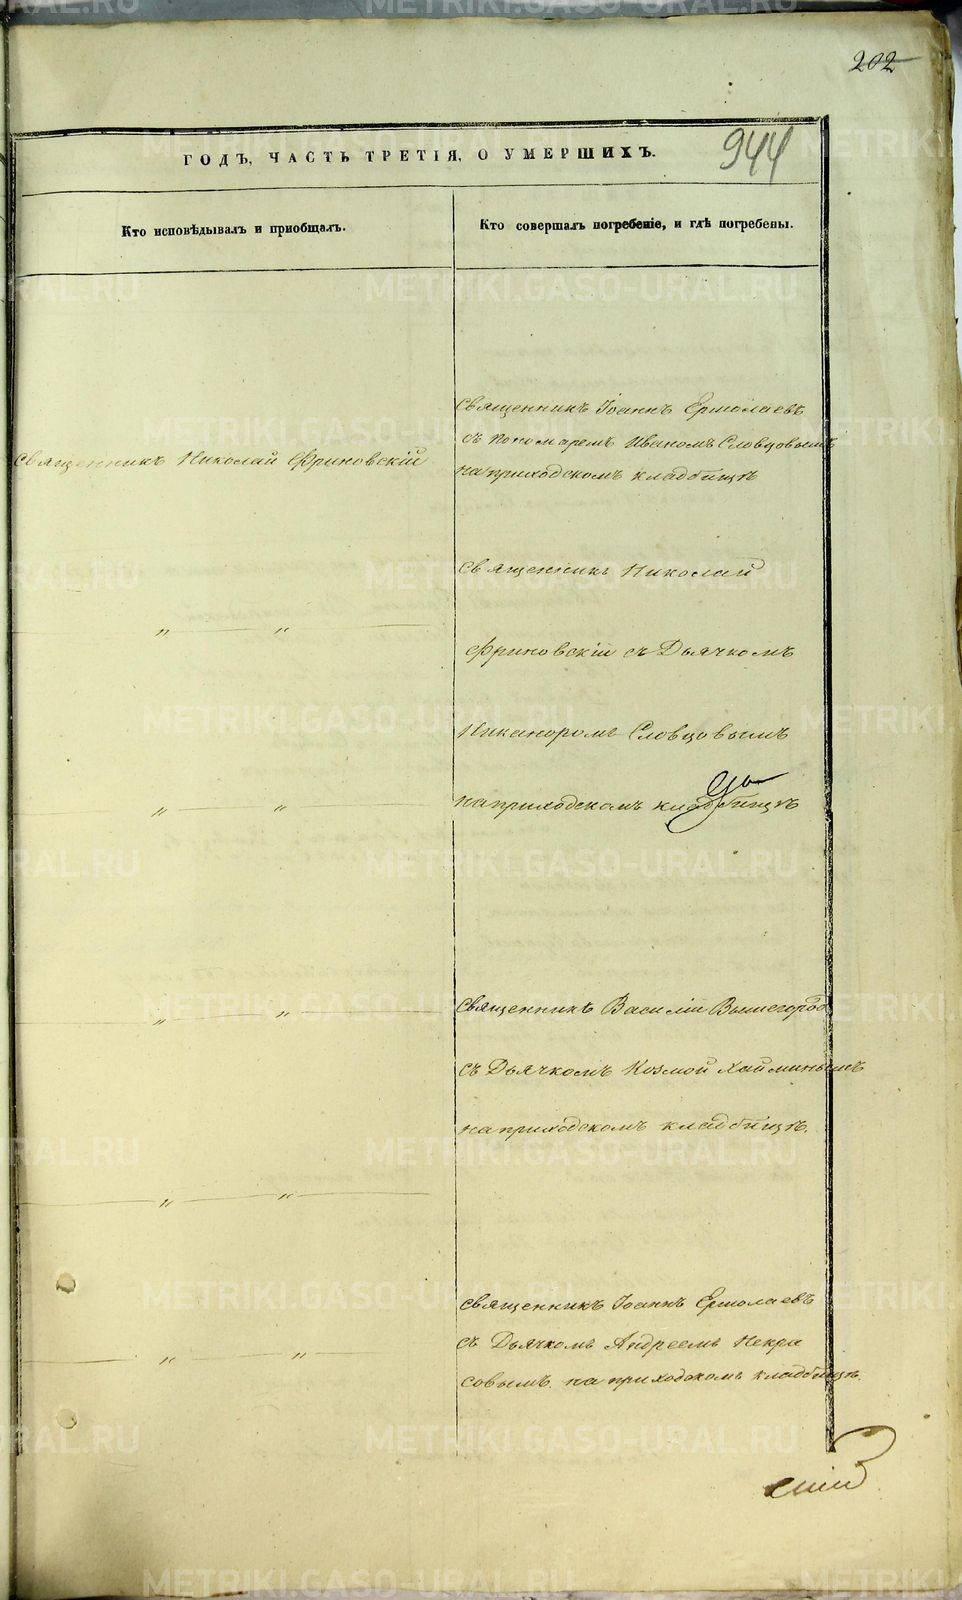 202
944
ГОДЪ, ЧАСТЬ ТРЕТІЯ, О УМЕРШИХЪ.
Кто исповѣдывалъ и приобщалъ.
Кто совершалъ погребеніе, и гдѣ погребены.
Священникъ Николай Фриновскій
Священникъ Іоаннъ Ермолаевъ
съ пономаремъ Иваномъ Словцовымъ
на приходскомъ кладбищѣ
" "
Священникъ Николай
Фриновскій съ Дьячкомъ
Никаноромъ Словцовымъ
" "
на приходскомъ кладбищѣ
" "
Священникъ Василій Вышегород
съ Дьячкомъ Козмой Хайминымъ
на приходскомъ кладбищѣ.
" "
" "
Священникъ Іоаннъ Ермолаевъ
съ Дьячкомъ Андреемъ Некра
совымъ на приходскомъ кладбищѣ.
METRIKI.GASO-URAL.RU